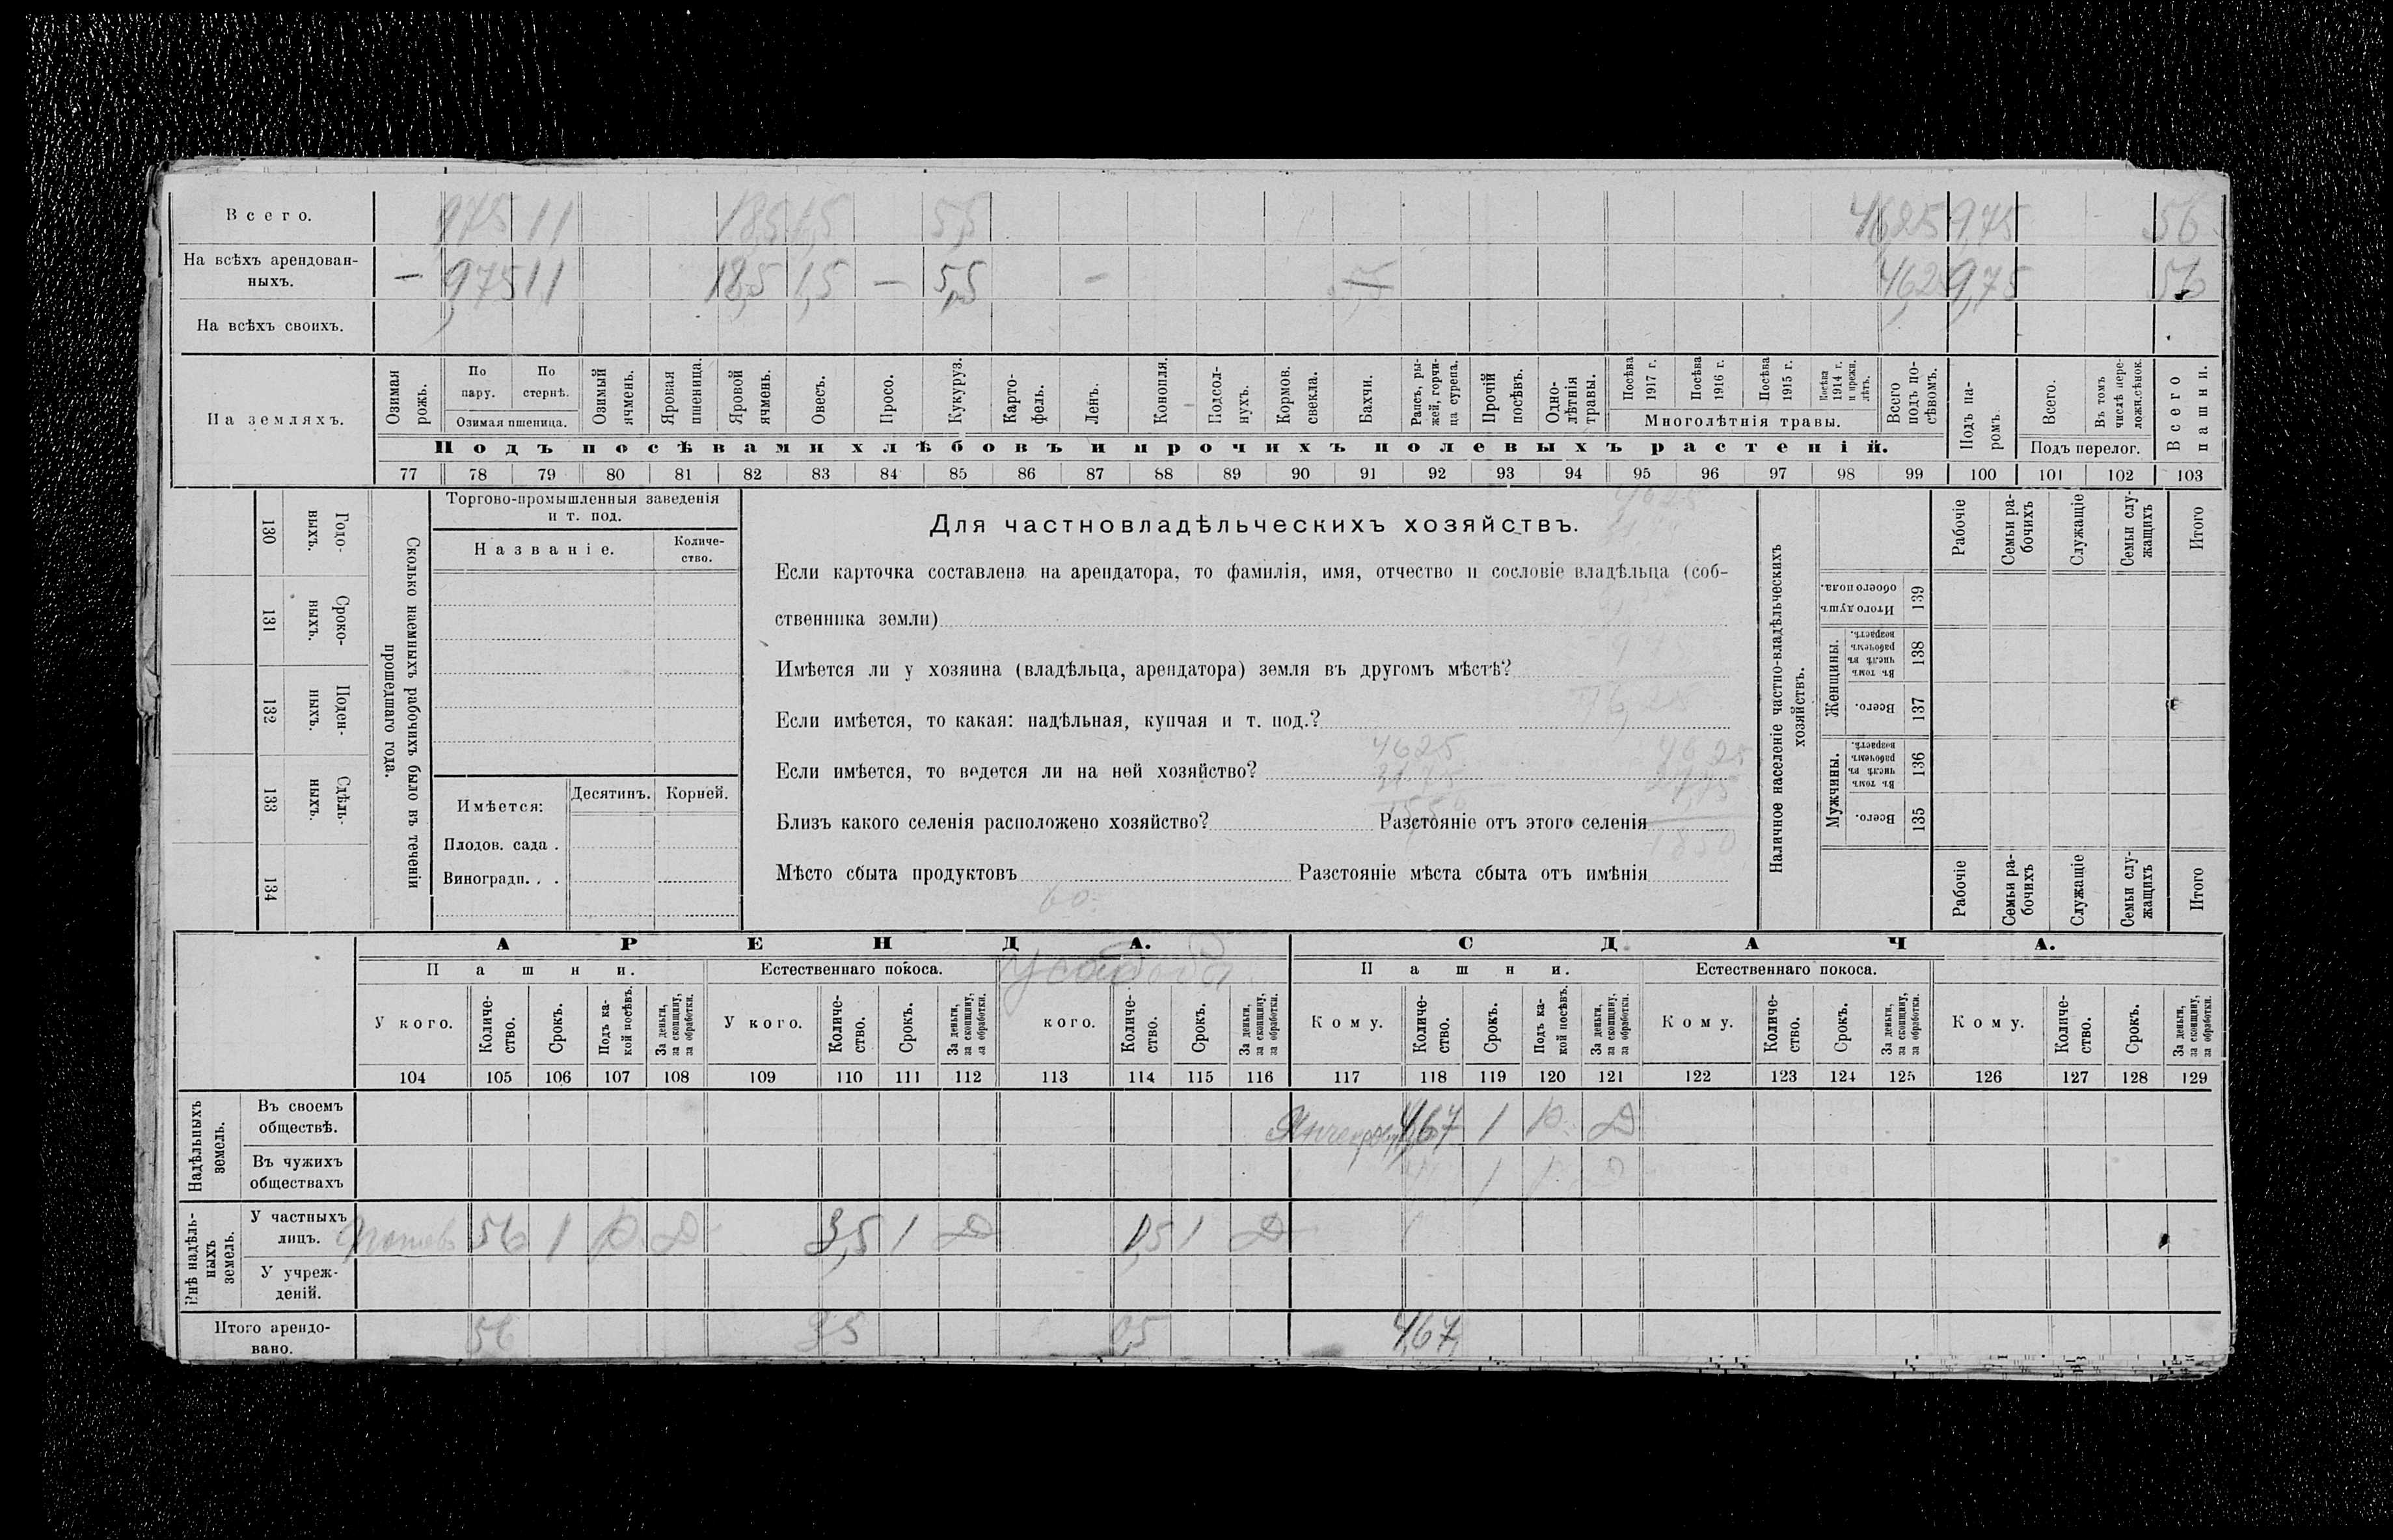 Всего. 9,75 11 18,5 1,5 5,5 46,25 9,75 56
На всѣхъ арендован-
ныхъ. — 9,75 11 18,5 1,5 — 5,5 — 46,25 9,75 56
На всѣхъ своихъ.
На земляхъ.
Озимая рожь.
По пару.
По стернѣ.
Озимая пшеница.
Озимый ячмень.
Яровая пшеница.
Яровой ячмень.
Овесъ.
Просо.
Кукуруз.
Карто-
фель.
Ленъ.
Конопля.
Подсол-
нухъ.
Кормов. свекла.
Бахчи.
Рапсъ, ры-
жей, горчи-
ца сурепа.
Прочій посѣвъ.
Одно-
лѣтнія травы.
Посѣва 1917 г.
Посѣва 1916 г.
Посѣва 1915 г.
Посѣва 1914 г. и прежн. лѣтъ.
Многолѣтнія травы.
Всего подъ по-
сѣвомъ.
Подъ посѣвами хлѣбовъ и прочихъ полевыхъ растеній.
Подъ па-
ромъ.
Всего.
Въ томъ числѣ пере-
ложн. сѣнок.
Подъ перелог.
Всего пашни.
77 78 79 80 81 82 83 84 85 86 87 88 89 90 91 92 93 94 95 96 97 98 99 100 101 102 103
Годо-
выхъ.
130
Сроко-
выхъ.
131
Поден-
ныхъ.
132
Сдѣль-
ныхъ.
133
134
Сколько наемныхъ рабочихъ было въ теченіи
прошедшаго года.
Торгово-промышленныя заведенія
и т. под.
Названіе.
Количе-
ство.
Имѣется:
Десятинъ.
Корней.
Плодов. сада .
Виноградн. . .
Для частновладѣльческихъ хозяйствъ.
Если карточка составлена на арендатора, то фамилія, имя, отчество и сословіе владѣльца (соб-
ственника земли)
Имѣется ли у хозяина (владѣльца, арендатора) земля въ другомъ мѣстѣ?
Если имѣется, то какая: надѣльная, купчая и т. под.?
4625
Если имѣется, то ведется ли на ней хозяйство?
Близъ какого селенія расположено хозяйство? Разстояніе отъ этого селенія
Мѣсто сбыта продуктовъ Разстояніе мѣста сбыта отъ имѣнія
Наличное населеніе частно-владѣльческихъ
хозяйствъ.
Рабочіе
Семьи ра-
бочихъ
Служащіе
Семьи слу-
жащихъ
Итого
Итого душъ обоего пола.
139
Женщины.
Въ томъ числѣ въ рабочемъ возрастѣ.
138
Всего.
137
Мужчины.
Въ томъ числѣ въ рабочемъ возрастѣ.
136
Всего.
135
Рабочіе
Семьи ра-
бочихъ
Служащіе
Семьи слу-
жащихъ
Итого
АРЕНДА.
Пашни.
Естественнаго покоса.
Усадьба
У кого.
Количе-
ство.
Срокъ.
Подъ ка-
кой посѣвъ.
За деньги,
за скопщину,
за обработки.
У кого.
Количе-
ство.
Срокъ.
За деньги,
за скопщину,
за обработки.
кого.
Количе-
ство.
Срокъ.
За деньги,
за скопщину,
за обработки.
СДАЧА.
Пашни.
Естественнаго покоса.
Кому.
Количе-
ство.
Срокъ.
Подъ ка-
кой посѣвъ.
За деньги,
за скопщину,
за обработки.
Кому.
Количе-
ство.
Срокъ.
За деньги,
за скопщину,
за обработки.
Кому.
Количе-
ство.
Срокъ.
За деньги,
за скопщину,
за обработки.
104 105 106 107 108 109 110 111 112 113 114 115 116 117 118 119 120 121 122 123 124 125 126 127 128 129
Надѣльныхъ
земель.
Въ своемъ
обществѣ. 4,67 1 Д
Въ чужихъ
обществахъ
Внѣ надѣль-
ныхъ
земель.
У частныхъ
лицъ. 56 1 Д 3,5 1 Д 1,5 1 Д
У учреж-
деній.
Итого арендо-
вано. 56 3,5 4,67